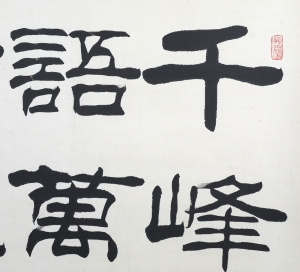 千峰
語萬